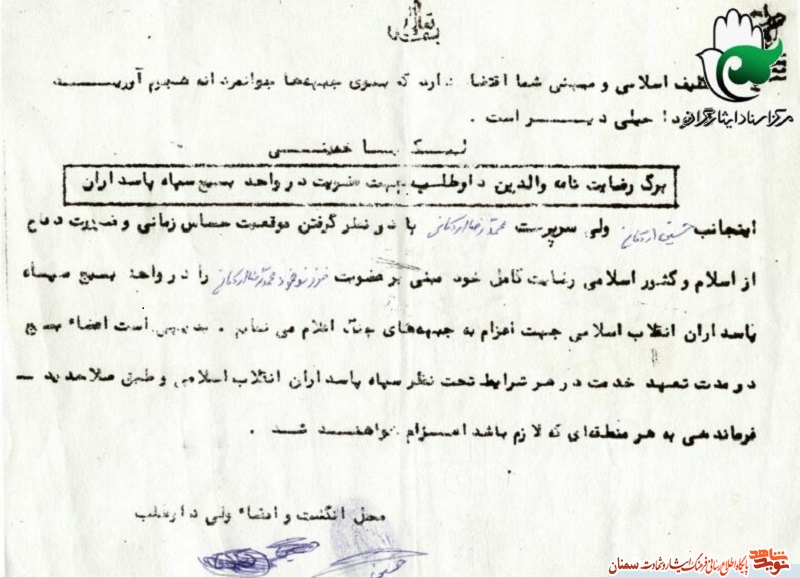 بسمه تعالی
اسلامی و میهنی شما اقتضا دارد که بسوی جبهه‌ها جوانمردانه هجوم آورید
مرکز اسناد ایثارگران
است .
برگ رضایت نامه والدین داوطلب جهت عضویت در واحد بسیج سپاه پاسداران
اینجانب ولی سرپرست با در نظر گرفتن موقعیت حساس زمانی و ضرورت دفاع
از اسلام و کشور اسلامی رضایت کامل خود مبنی بر عضویت فرزند خود را در واحد بسیج سپاه
پاسداران انقلاب اسلامی جهت اعزام به جبهه‌های جنگ اعلام می نمایم . بدیهی است اعضاء بسیج
در مدت تعهد خدمت در هر شرایط تحت نظر سپاه پاسداران انقلاب اسلامی و طبق صلاحدید
فرماندهی به هر منطقه‌ای که لازم باشد اعزام خواهند شد .
محل انگشت و امضاء ولی داوطلب
نوید شاهد
پایگاه اطلاع رسانی فرهنگ ایثار و شهادت سمنان